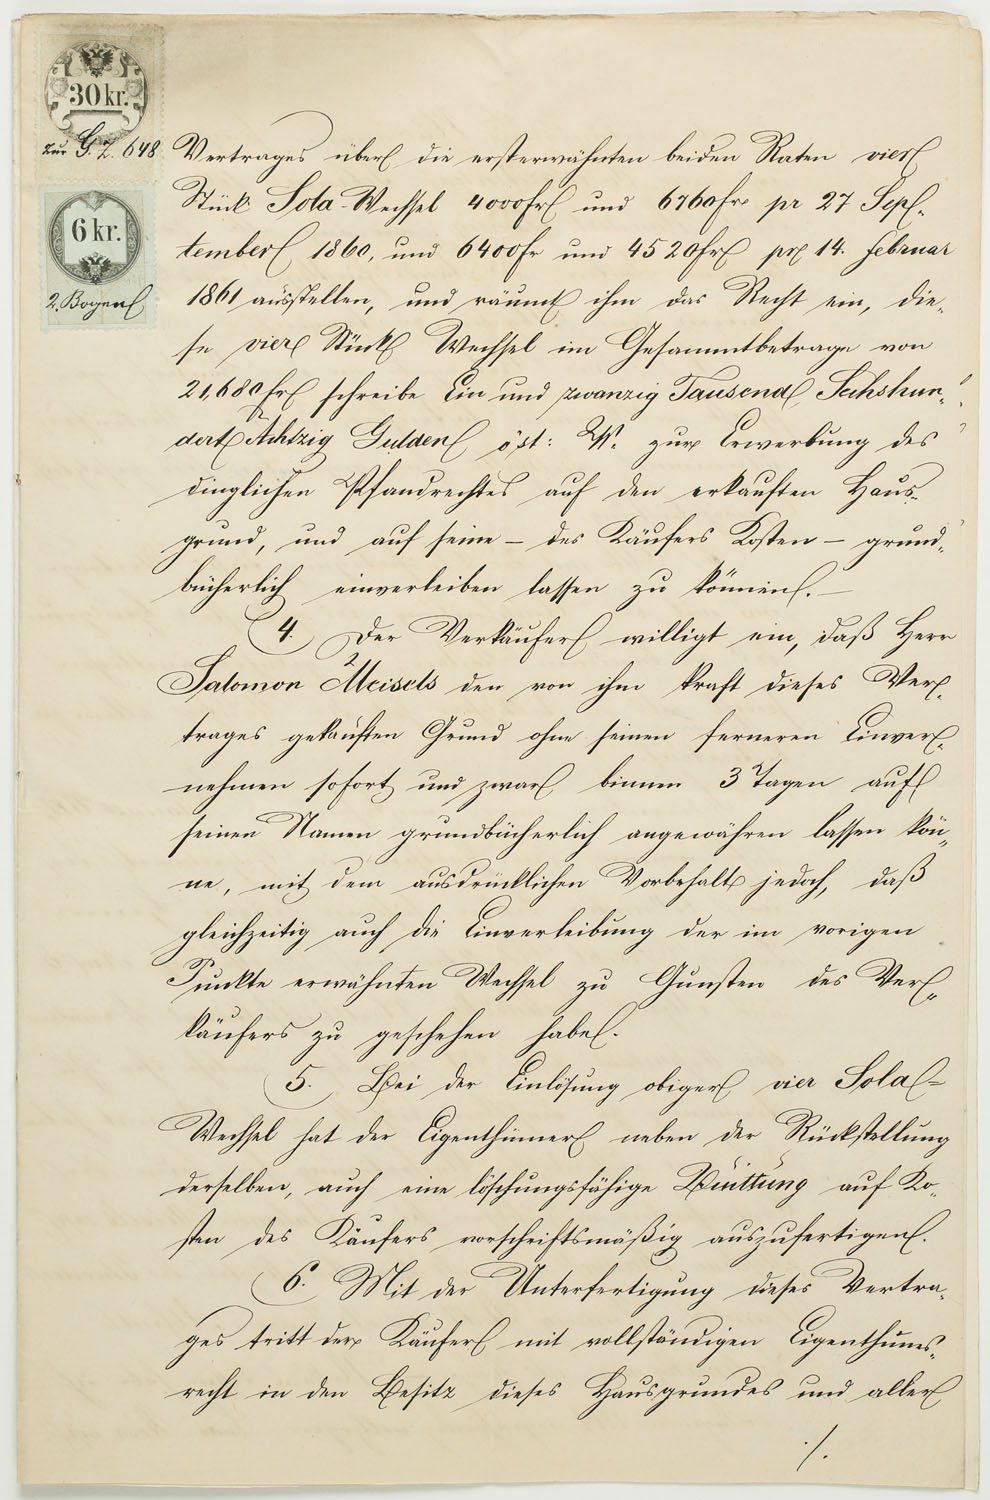 30 kr.
zur G. Z. 648
6 kr.
2. Bogen
Vertrages über die ersterwähnten beiden Raten vier
Stück Sola-Wechsel 4000 fr und 6760 fr pr 27 Sep-
tember 1860, und 6400 fr und 4520 fr pr 14. februar
1861 ausstellen, und räumt ihm das Recht ein, die-
se vier Stück Wechsel im Gesammtbetrage von
21,680 fr schreibe Ein und zwanzig Tausend Sechshun-
dert Achtzig Gulden öst: W. zur Erwerbung des
dinglichen Pfandrechtes auf den erkauften Haus-
grund, und auf seine – des Käufers Kosten – grund-
bücherlich einverleiben lassen zu können. –
4. Der Verkäufer willigt ein, daß Herr
Salomon Meisels den von ihm kraft dieses Ver-
trages gekauften Grund ohne seinen ferneren Einver-
nehmen sofort und zwar binnen 3 Tagen auf
seinen Namen grundbücherlich angewähren lassen kön-
ne, mit dem ausdrücklichen Vorbehalt jedoch, daß
gleichzeitig auch die Einverleibung der im vorigen
Punkte erwähnten Wechsel zu Gunsten des Ver-
käufers zu geschehen habe.
5. Bei der Einlösung obiger vier Sola-
Wechsel hat der Eigenthümer neben der Rückstellung
derselben, auch eine löschungsfähige Quittung auf Ko-
sten des Käufers vorschriftsmäßig auszufertigen.
6. Mit der Unterfertigung dieses Vertra-
ges tritt der Käufer mit vollständigen Eigenthums-
recht in den Besitz dieses Hausgrundes und aller
./.